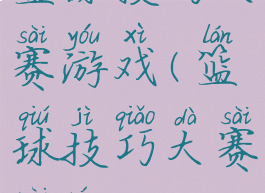 sài yóu xì lán
赛游戏(篮
qiú jì qiǎo dà sài
球技巧大赛